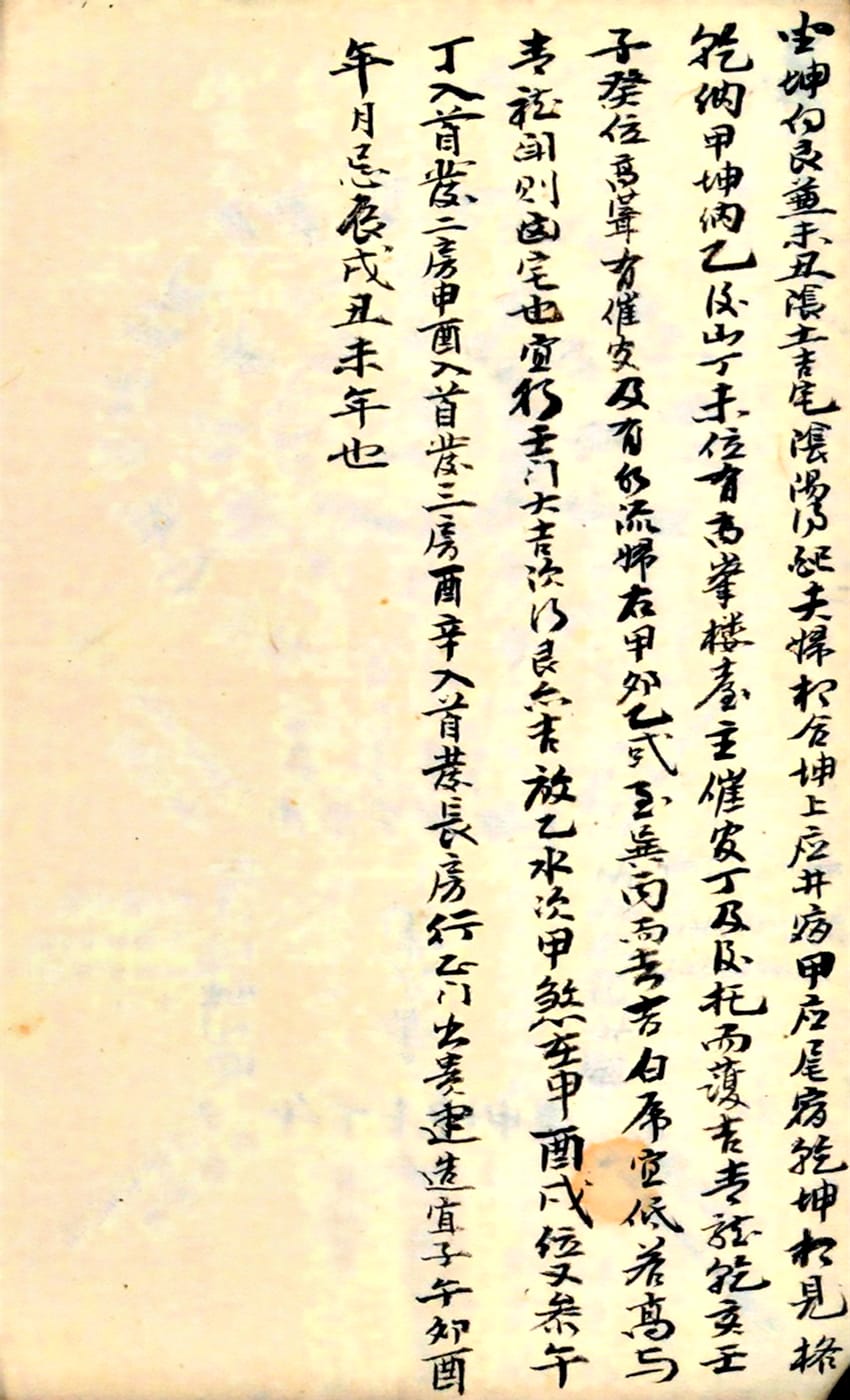 坐坤向艮兼未丑陰土吉宅陰陽得配夫婦相合坤上应井宿甲应尾宿乾坤相見格
乾纳甲坤纳乙後山丁未位有高峯楼臺主催官丁及後托而護吉青龍乾亥壬
子癸位高聳有催官及有水流婦右甲卯乙式至巽丙而去吉白虎宜低若高与
青龍闲则凶宅也宜行壬门大吉次行艮亦吉放乙水次甲煞在申酉戌位又忝午
丁入首發二房申酉入首發三房酉辛入首發長房行乙门出贵建造宜子午卯酉
年月忌辰戌丑未年也